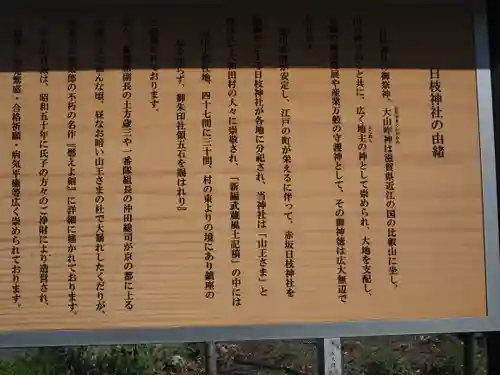 日枝神社の由緒
御祭神、大山咋神は滋賀県近江の国の比叡山に坐し、
と共に、広く地主の神として崇められ、大地を支配し、
や産業万般の守護神として、その御神徳は広大無辺で
安定し、江戸の町が栄えるに伴って、赤坂日枝神社を
日枝神社が各地に分祀され、当神社は「山王さま」と
田村の人々に崇敬され、「新編武蔵風土記稿」の中には
地、四十七間に三十間、村の東よりの境にあり鎮座の
らず、御朱印社領五石を賜はれり』
おります。
副長の土方歳三や一番隊組長の沖田総司が京の都に上る
な頃、昼なお暗い山王さまの杜で大暴れしたくだりが、
郎の不朽の名作『燃えよ剣』に詳細に描かれております。
は、昭和五十年に氏子の方々のご浄財により造営され、
繁盛・合格祈願・病気平癒等広く崇められております。